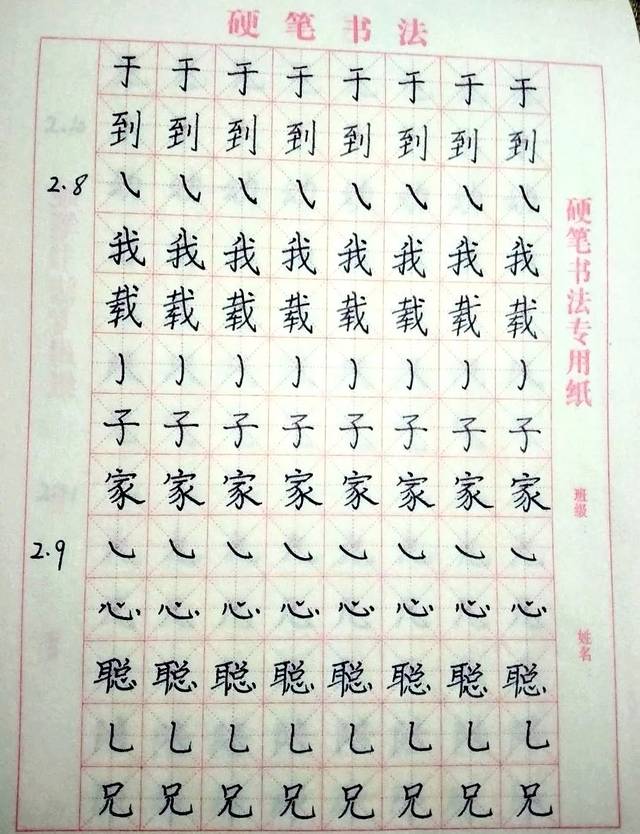 硬笔书法
于于于于于于于于
到到到到到到到到
2.8
㇂㇂㇂㇂㇂㇂㇂㇂
我我我我我我我我
载载载载载载载载
㇁㇁㇁㇁㇁㇁㇁㇁
子子子子子子子子
家家家家家家家家
2.9
㇃㇃㇃㇃㇃㇃㇃㇃
心心心心心心心心
聪聪聪聪聪聪聪聪
乚乚乚乚乚乚乚乚
兄兄兄兄兄兄兄兄
硬笔书法专用纸
班级
姓名